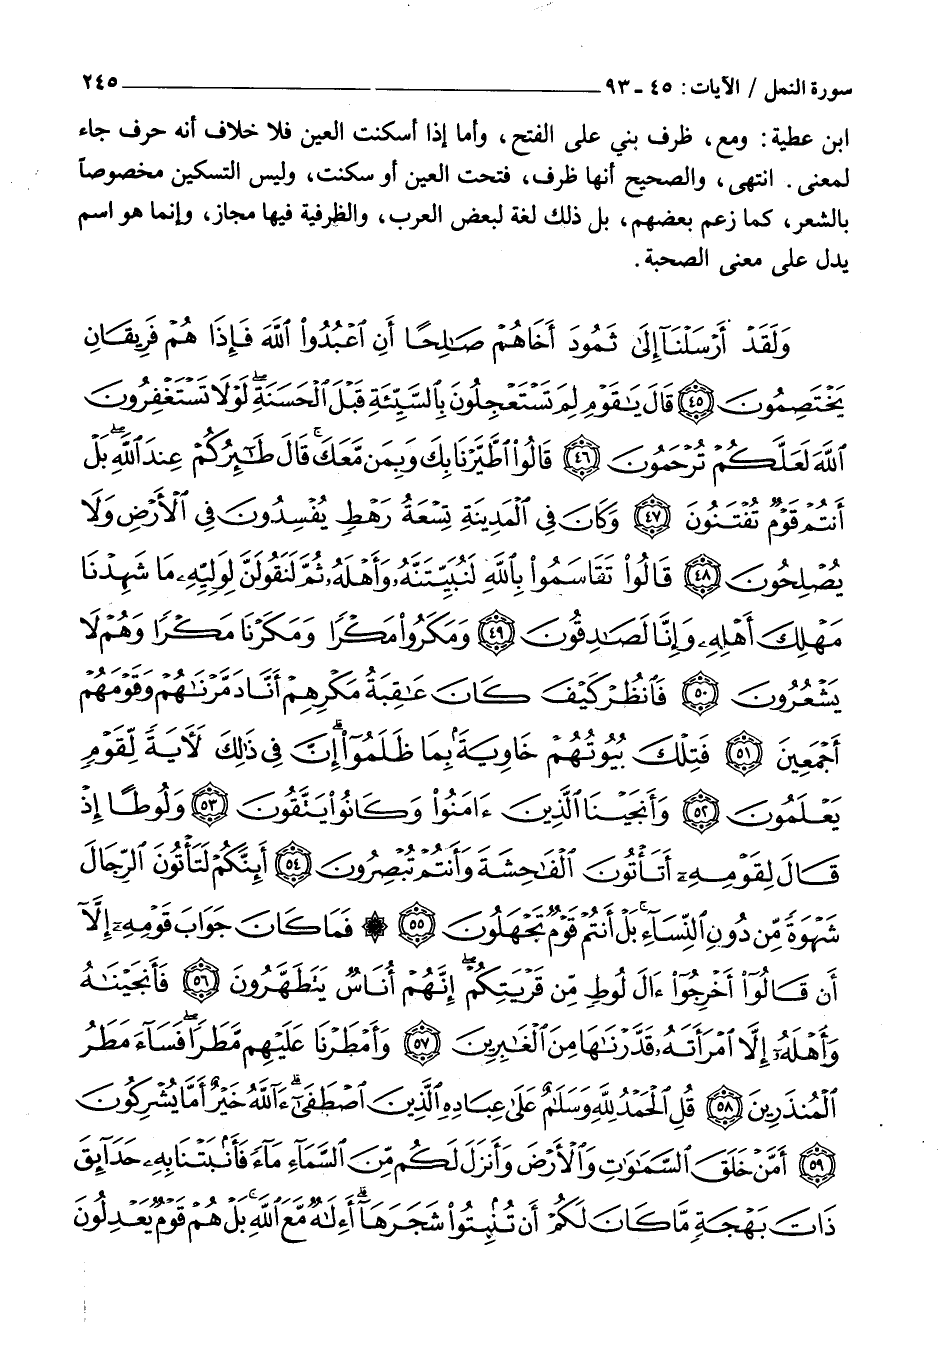 سورة النمل / الآيات : ٤٥ - ٩٣ ٢٤٥
ابن عطية : ومع، ظرف بني على الفتح، وأما إذا أسكنت العين فلا خلاف أنه حرف جاء
لمعنى. انتهى، والصحيح أنها ظرف، فتحت العين أو سكنت، وليس التسكين مخصوصاً
بالشعر، كما زعم بعضهم، بل ذلك لغة لبعض العرب، والظرفية فيها مجاز، وإنما هو اسم
يدل على معنى الصحبة.
وَلَقَدْ أَرْسَلْنَآ إِلَىٰ ثَمُودَ أَخَاهُمْ صَٰلِحًا أَنِ ٱعْبُدُوا۟ ٱللَّهَ فَإِذَا هُمْ فَرِيقَانِ
يَخْتَصِمُونَ ﴿٤٥﴾ قَالَ يَٰقَوْمِ لِمَ تَسْتَعْجِلُونَ بِٱلسَّيِّئَةِ قَبْلَ ٱلْحَسَنَةِ ۖ لَوْلَا تَسْتَغْفِرُونَ
ٱللَّهَ لَعَلَّكُمْ تُرْحَمُونَ ﴿٤٦﴾ قَالُوا۟ ٱطَّيَّرْنَا بِكَ وَبِمَن مَّعَكَ ۚ قَالَ طَٰٓئِرُكُمْ عِندَ ٱللَّهِ ۖ بَلْ
أَنتُمْ قَوْمٌ تُفْتَنُونَ ﴿٤٧﴾ وَكَانَ فِى ٱلْمَدِينَةِ تِسْعَةُ رَهْطٍ يُفْسِدُونَ فِى ٱلْأَرْضِ وَلَا
يُصْلِحُونَ ﴿٤٨﴾ قَالُوا۟ تَقَاسَمُوا۟ بِٱللَّهِ لَنُبَيِّتَنَّهُۥ وَأَهْلَهُۥ ثُمَّ لَنَقُولَنَّ لِوَلِيِّهِۦ مَا شَهِدْنَا
مَهْلِكَ أَهْلِهِۦ وَإِنَّا لَصَٰدِقُونَ ﴿٤٩﴾ وَمَكَرُوا۟ مَكْرًا وَمَكَرْنَا مَكْرًا وَهُمْ لَا
يَشْعُرُونَ ﴿٥٠﴾ فَٱنظُرْ كَيْفَ كَانَ عَٰقِبَةُ مَكْرِهِمْ أَنَّا دَمَّرْنَٰهُمْ وَقَوْمَهُمْ
أَجْمَعِينَ ﴿٥١﴾ فَتِلْكَ بُيُوتُهُمْ خَاوِيَةًۢ بِمَا ظَلَمُوٓا۟ ۗ إِنَّ فِى ذَٰلِكَ لَءَايَةً لِّقَوْمٍ
يَعْلَمُونَ ﴿٥٢﴾ وَأَنجَيْنَا ٱلَّذِينَ ءَامَنُوا۟ وَكَانُوا۟ يَتَّقُونَ ﴿٥٣﴾ وَلُوطًا إِذْ
قَالَ لِقَوْمِهِۦٓ أَتَأْتُونَ ٱلْفَٰحِشَةَ وَأَنتُمْ تُبْصِرُونَ ﴿٥٤﴾ أَئِنَّكُمْ لَتَأْتُونَ ٱلرِّجَالَ
شَهْوَةً مِّن دُونِ ٱلنِّسَآءِ ۚ بَلْ أَنتُمْ قَوْمٌ تَجْهَلُونَ ﴿٥٥﴾ ۞ فَمَا كَانَ جَوَابَ قَوْمِهِۦٓ إِلَّآ
أَن قَالُوٓا۟ أَخْرِجُوٓا۟ ءَالَ لُوطٍ مِّن قَرْيَتِكُمْ ۖ إِنَّهُمْ أُنَاسٌ يَتَطَهَّرُونَ ﴿٥٦﴾ فَأَنجَيْنَٰهُ
وَأَهْلَهُۥٓ إِلَّا ٱمْرَأَتَهُۥ قَدَّرْنَٰهَا مِنَ ٱلْغَٰبِرِينَ ﴿٥٧﴾ وَأَمْطَرْنَا عَلَيْهِم مَّطَرًا ۖ فَسَآءَ مَطَرُ
ٱلْمُنذَرِينَ ﴿٥٨﴾ قُلِ ٱلْحَمْدُ لِلَّهِ وَسَلَٰمٌ عَلَىٰ عِبَادِهِ ٱلَّذِينَ ٱصْطَفَىٰٓ ۗ ءَآللَّهُ خَيْرٌ أَمَّا يُشْرِكُونَ
﴿٥٩﴾ أَمَّنْ خَلَقَ ٱلسَّمَٰوَٰتِ وَٱلْأَرْضَ وَأَنزَلَ لَكُم مِّنَ ٱلسَّمَآءِ مَآءً فَأَنۢبَتْنَا بِهِۦ حَدَآئِقَ
ذَاتَ بَهْجَةٍ مَّا كَانَ لَكُمْ أَن تُنۢبِتُوا۟ شَجَرَهَآ ۗ أَءِلَٰهٌ مَّعَ ٱللَّهِ ۚ بَلْ هُمْ قَوْمٌ يَعْدِلُونَ